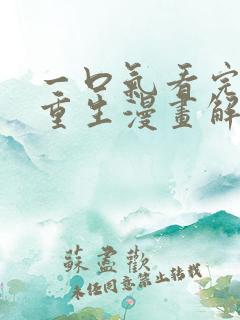 一口氣看完
重生漫畫解
蘇盡歡
未經同意禁止轉載